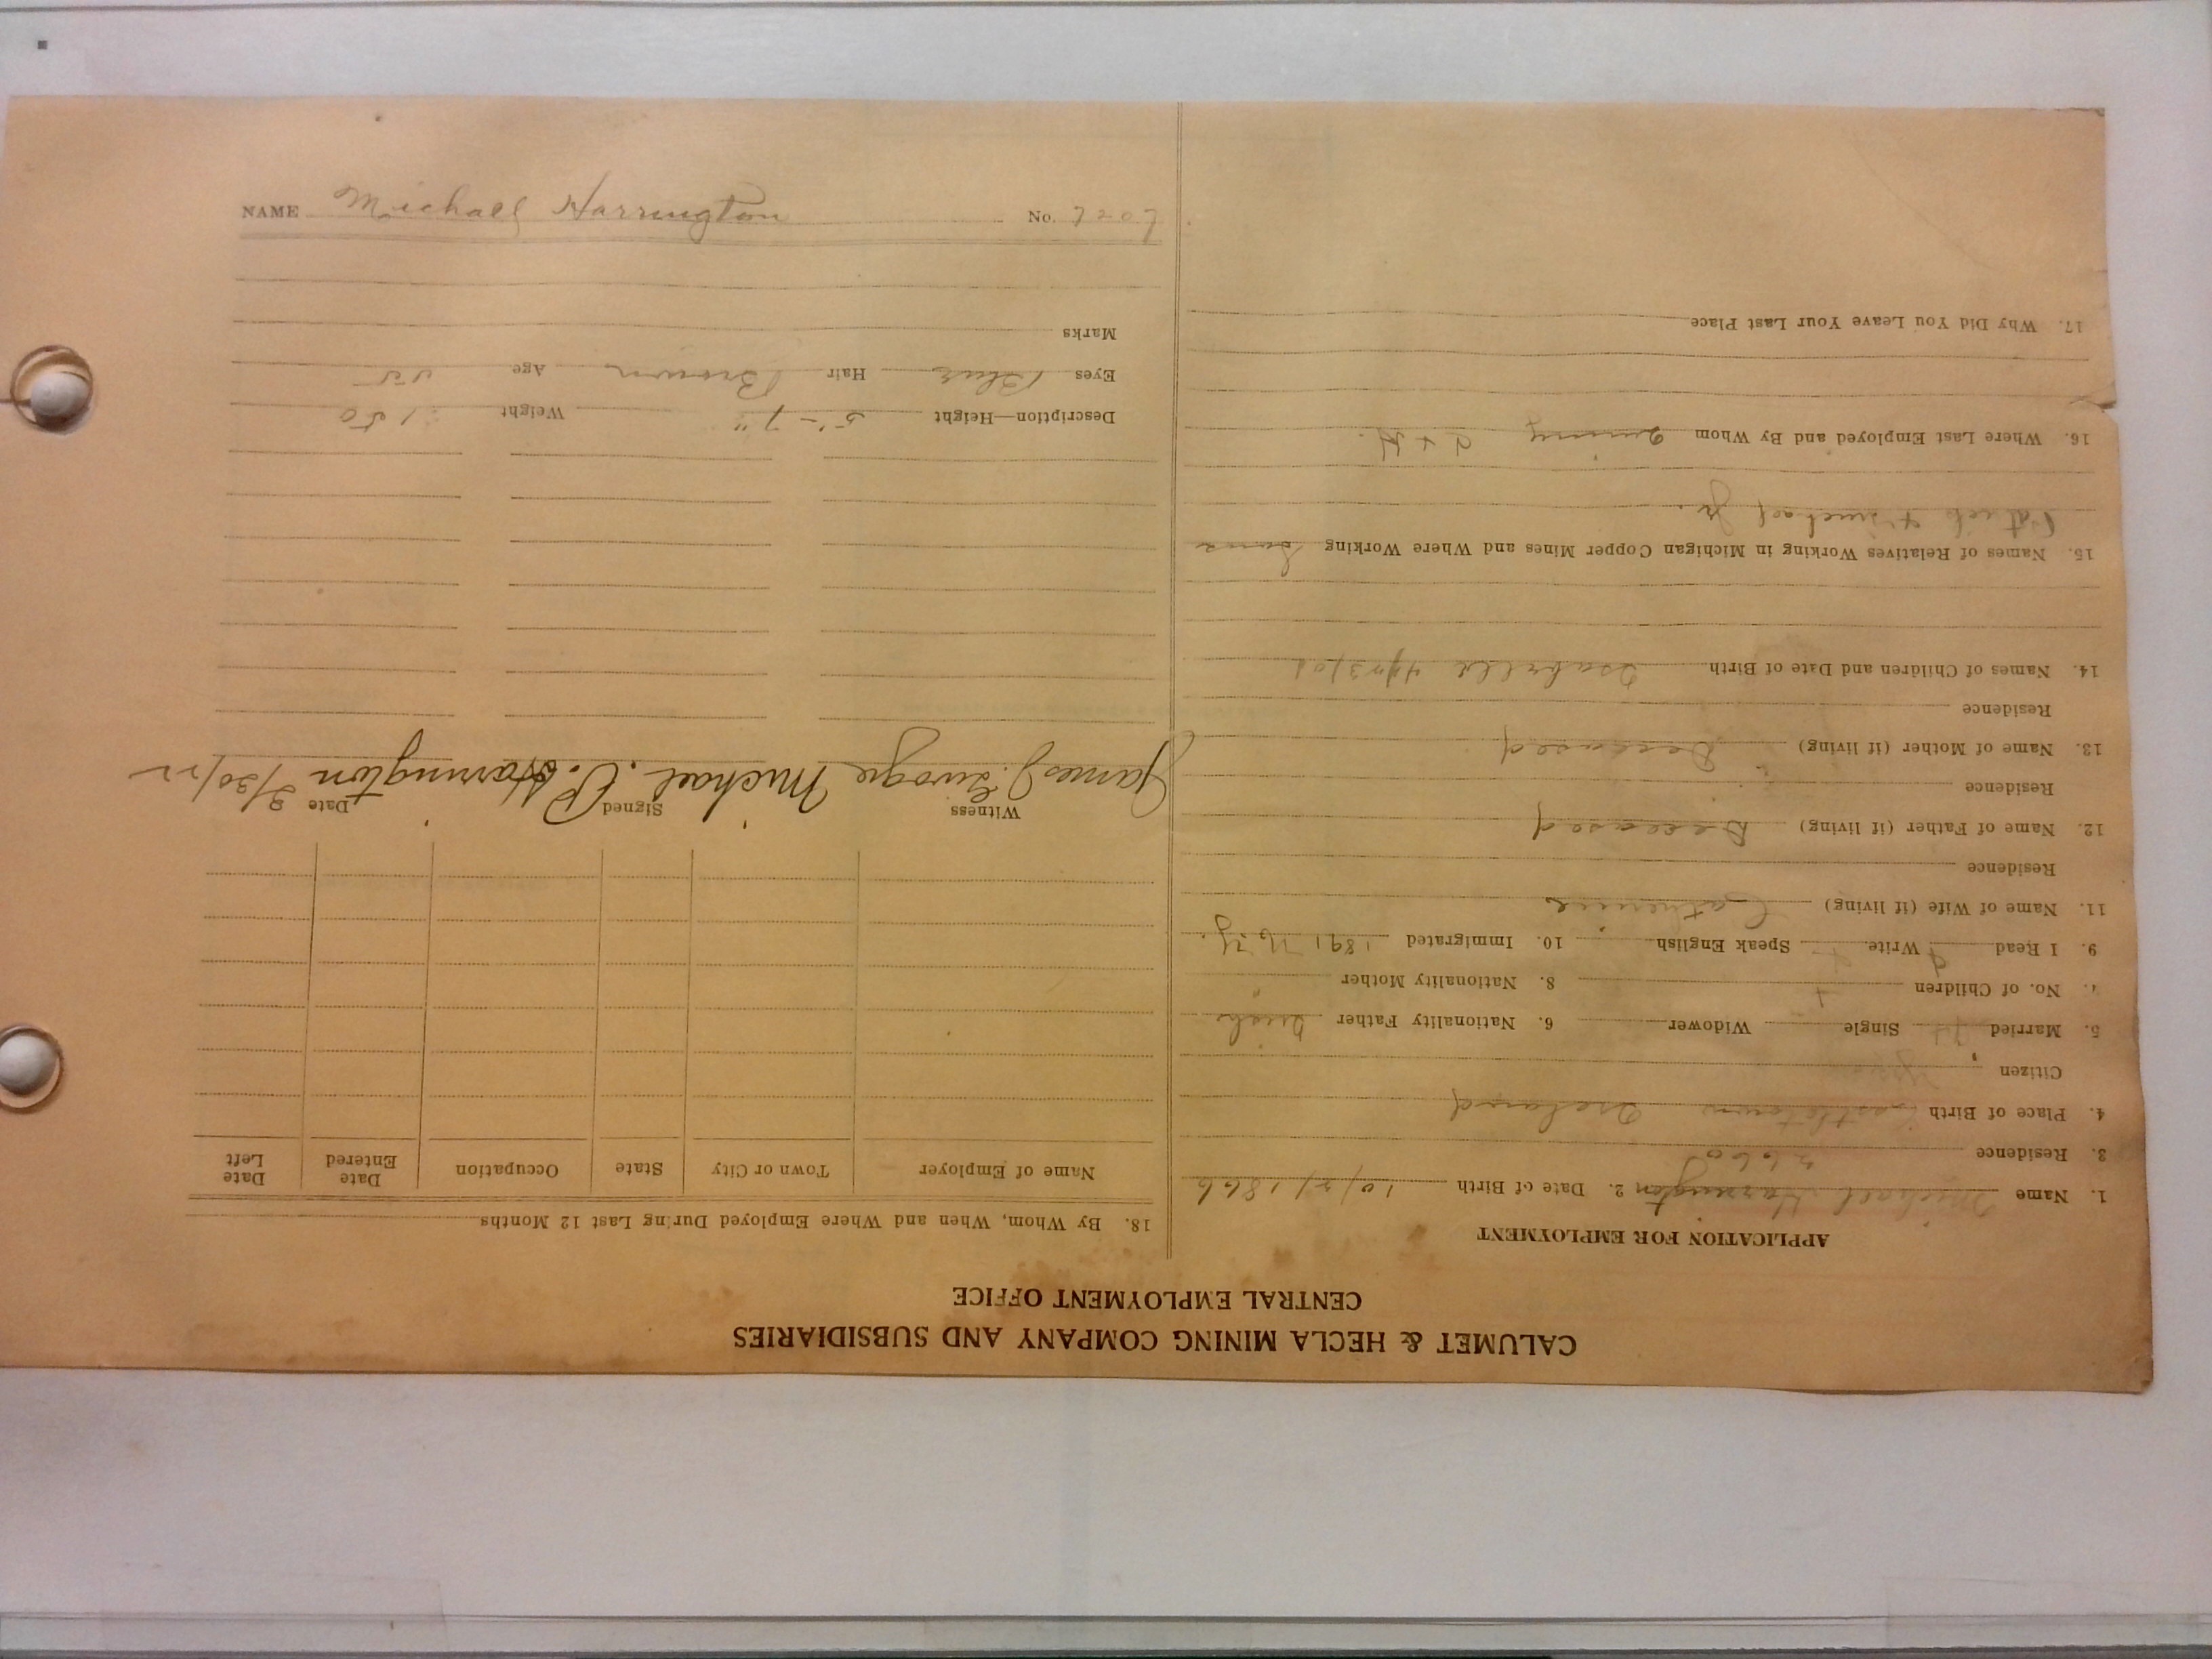 CALUMET & HECLA MINING COMPANY AND SUBSIDIARIES
CENTRAL EMPLOYMENT OFFICE
APPLICATION FOR EMPLOYMENT
1. Name Michael Harrington 2. Date of Birth 10/5/1866
3. Residence
4. Place of Birth Castletown Ireland
Citizen yes
5. Married Single Widower 6. Nationality Father Irish
7. No. of Children 8. Nationality Mother
9. I Read Write Speak English 10. Immigrated 1891 N.Y.
11. Name of Wife (if living) Catherine
Residence
12. Name of Father (if living) Deceased
Residence
13. Name of Mother (if living) Deceased
Residence
14. Names of Children and Date of Birth Isabelle
15. Names of Relatives Working in Michigan Copper Mines and Where Working Sons
Patrick + Michael Jr.
16. Where Last Employed and By Whom Quincy
17. Why Did You Leave Your Last Place
18. By Whom, When and Where Employed During Last 12 Months
Name of Employer Town or City State Occupation Date Entered Date Left
Witness Signed Date
James J. Michael C. Harrington 3/30/22
Description—Height 5'-7" Weight 150
Eyes Blue Hair Brown Age 55
Marks
NAME Michael Harrington No. 7207